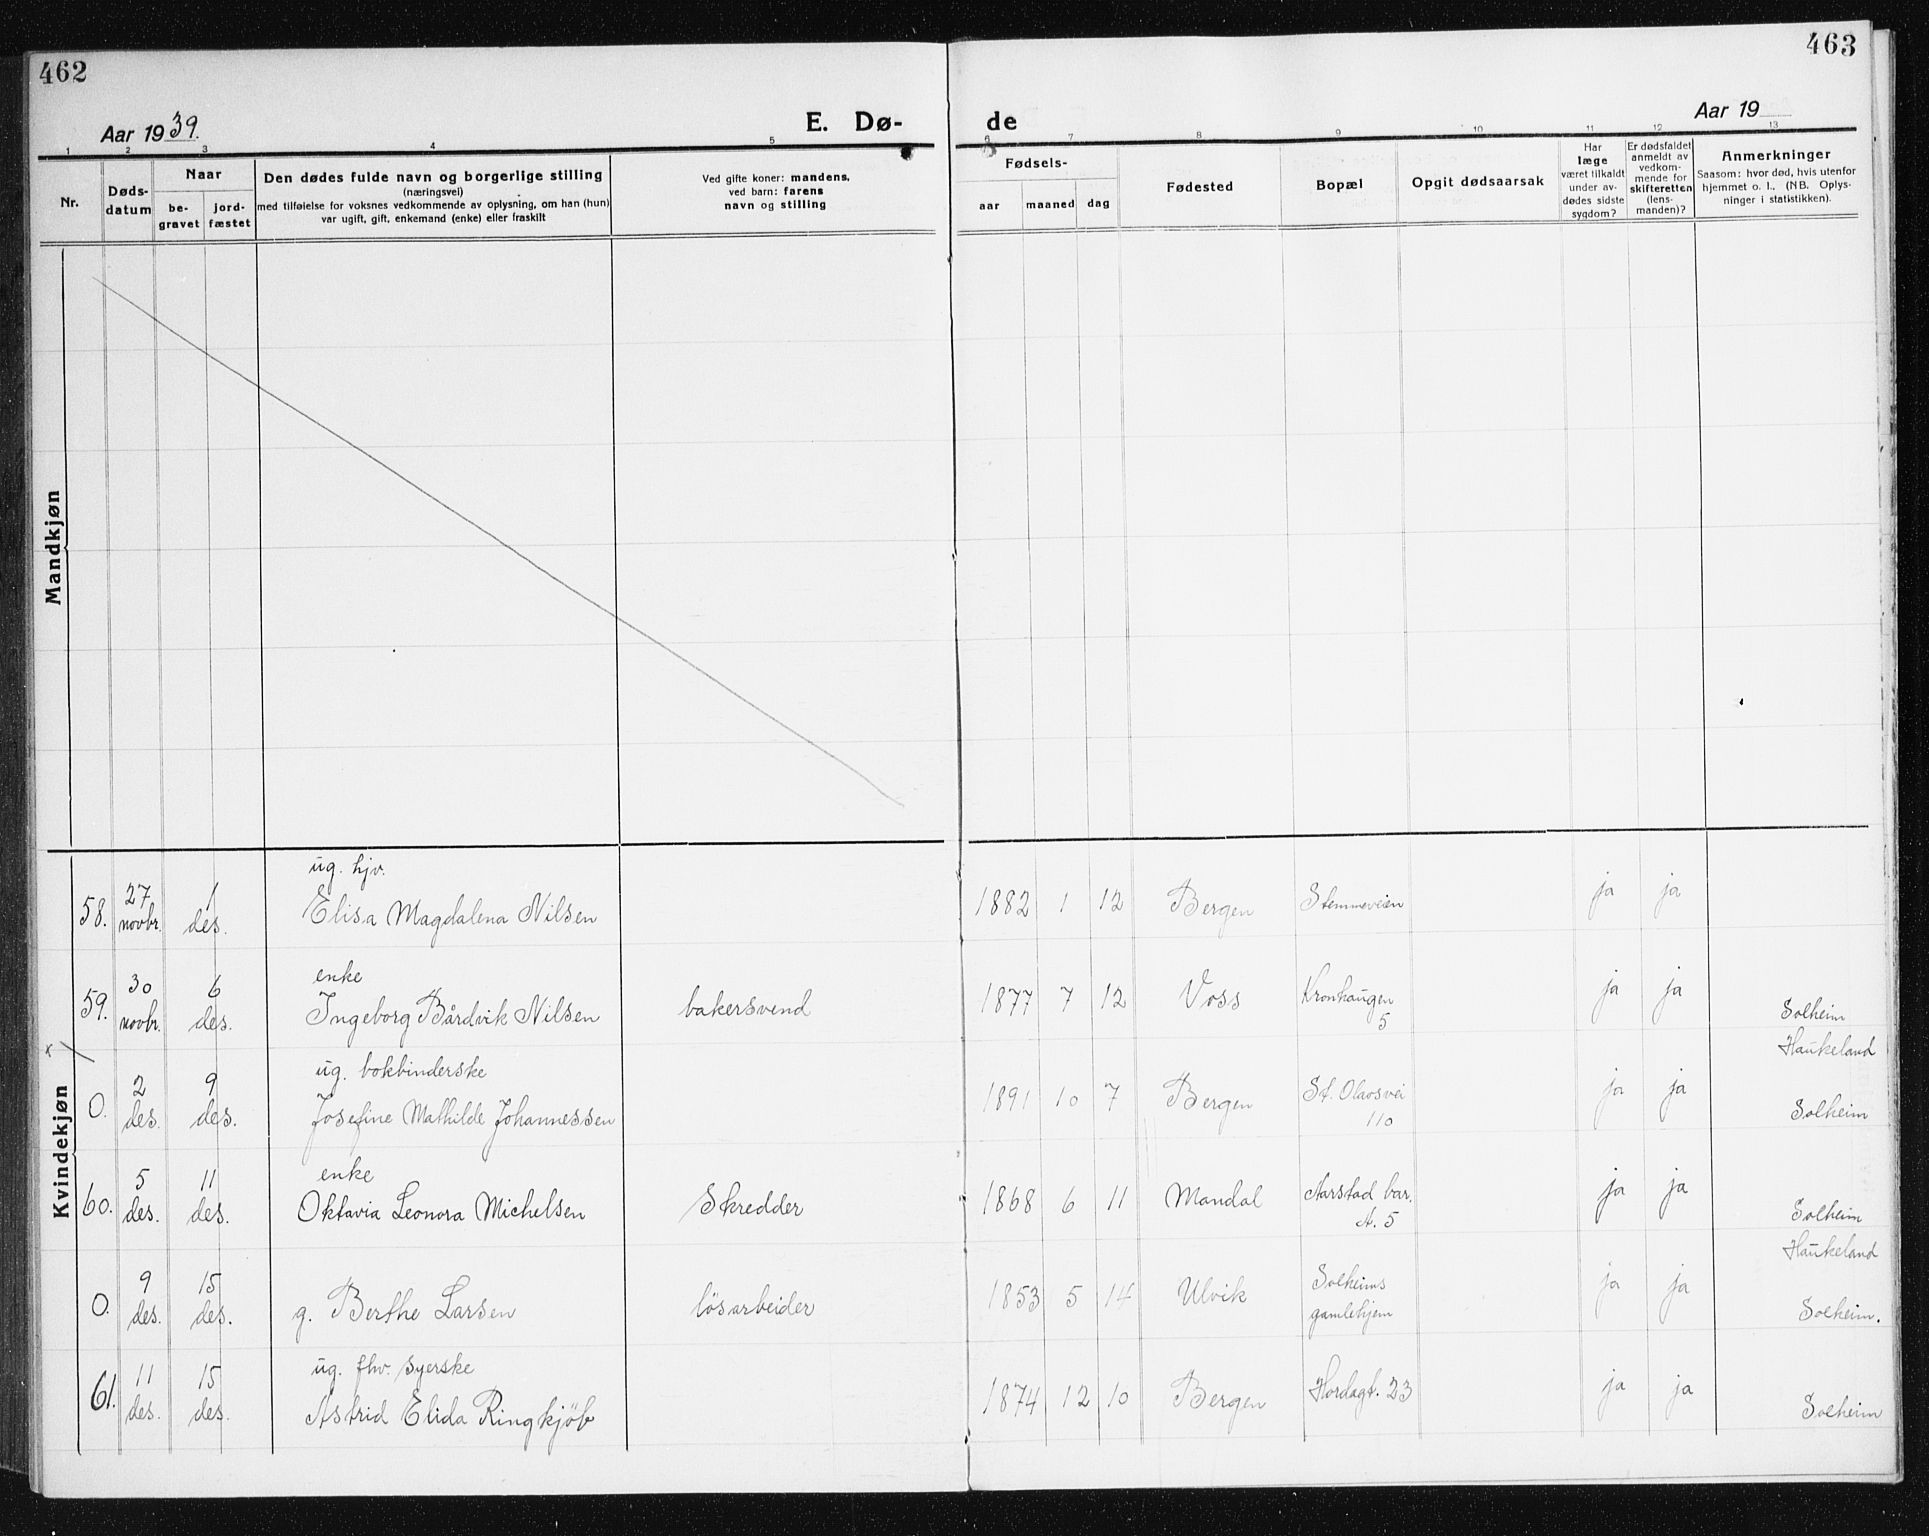 462
463
Aar 1939.
E. Dø-
de
Aar 19
1 2 3 4 5
6 7 8 9 10 11 12 13
Nr.
Døds-
datum
Naar
be-
gravet
jord-
fæstet
Den dødes fulde navn og borgerlige stilling
(næringsvei)
med tilføielse for voksnes vedkommende av oplysning, om han (hun)
var ugift, gift, enkemand (enke) eller fraskilt
Ved gifte koner: mandens,
ved barn: farens
navn og stilling
Fødsels-
aar maaned dag
Fødested
Bopæl
Opgit dødsaarsak
Har
læge
været tilkaldt
under av-
dødes sidste
sygdom?
Er dødsfaldet
anmeldt av
vedkom-
mende for
skifteretten
(lens-
manden)?
Anmerkninger
Saasom: hvor død, hvis utenfor
hjemmet o. l., (NB. Oplys-
ninger i statistikken).
Mandkjøn
Kvindekjøn
ug. hjv.
58. 27 novbr. 1 des. Elisa Magdalena Nilsen 1882 1 12 Bergen Stemmeveien ja ja
enke
59. 30 novbr. 6 des. Ingeborg Bårdvik Nilsen bakersvend 1877 7 12 Voss Kronhaugen 5 ja ja Solheim
x
Haukeland
ug. bokbinderske
0. 2 des. 9 des. Josefine Mathilde Johannessen 1891 10 7 Bergen St. Olavsvei 110 ja ja Solheim
enke
60. 5 des. 11 des. Oktavia Leonora Michelsen Skredder 1868 6 11 Mandal Aarstad bar. A. 5 ja ja Solheim
Haukeland
0. 9 des. 15 des. g. Berthe Larsen løsarbeider 1853 5 14 Ulvik Solheims gamlehjem ja ja Solheim.
ug. fhv. syerske
61. 11 des. 15 des. Astrid Elida Ringkjøb 1874 12 10 Bergen Hordagt. 23 ja ja Solheim